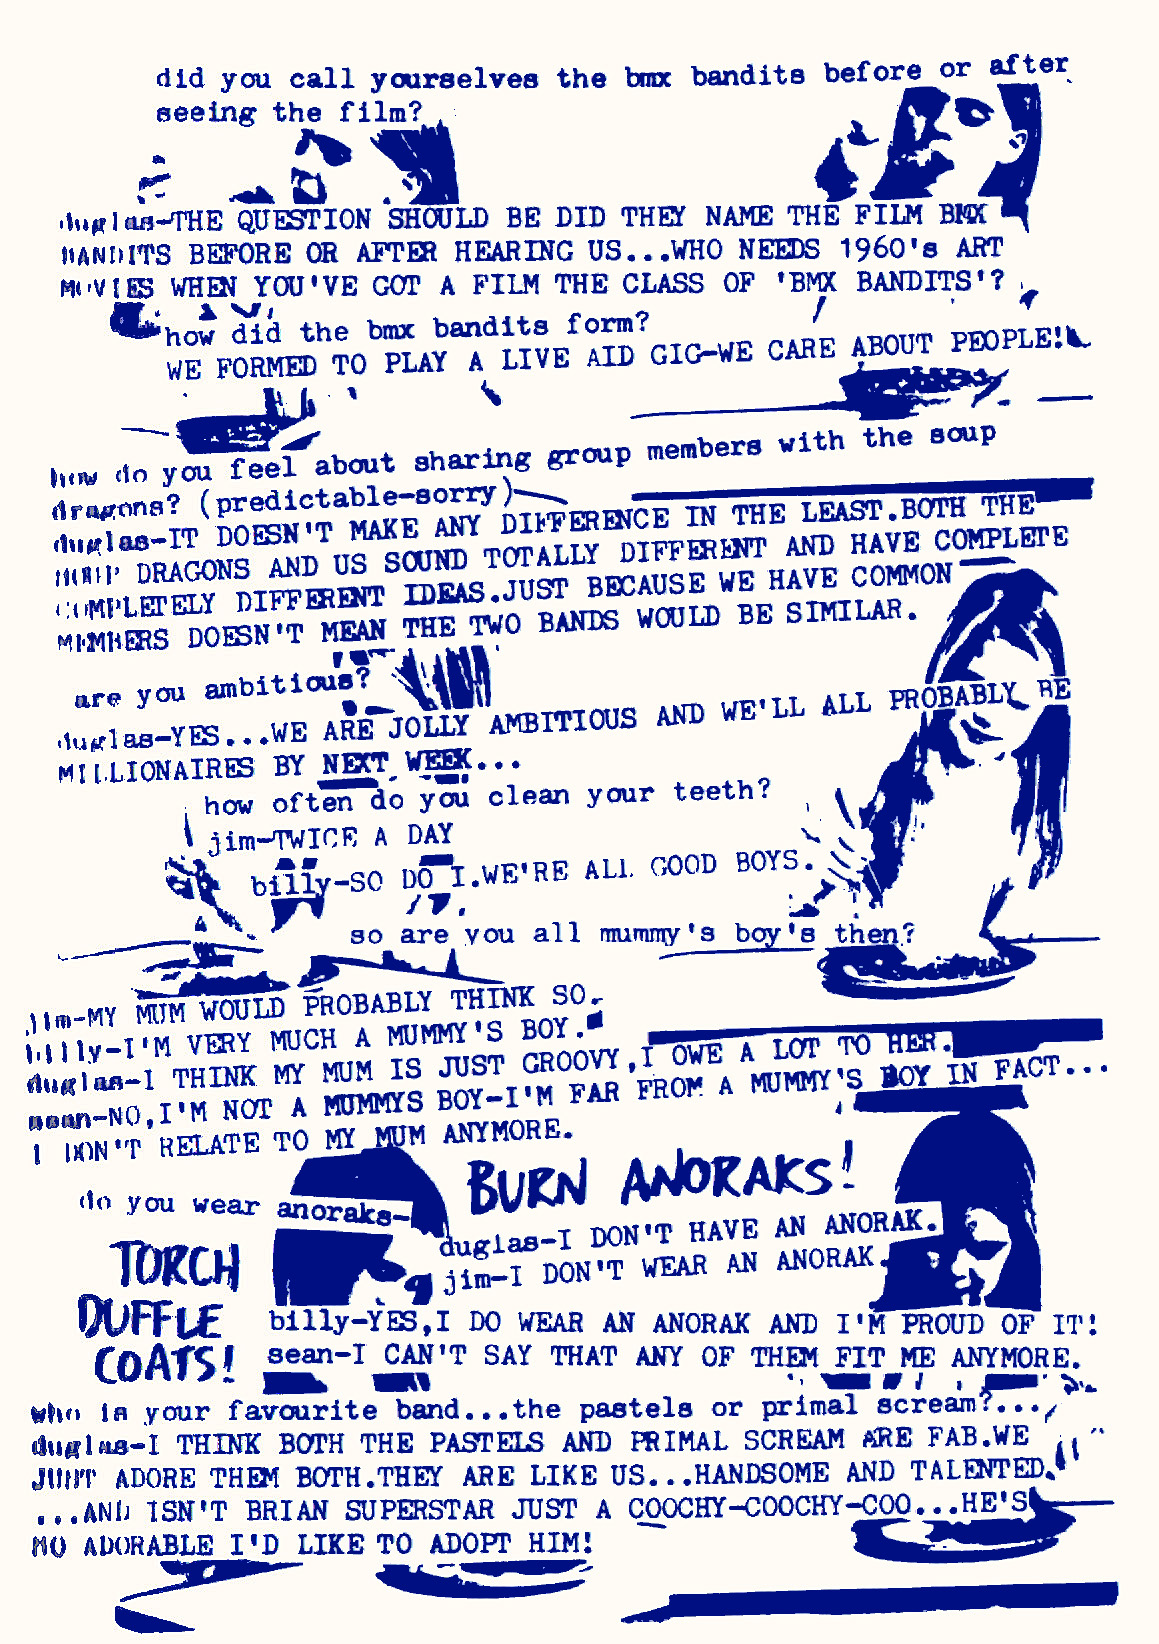 did you call yourselves the bmx bandits before or after
seeing the film?
duglas-THE QUESTION SHOULD BE DID THEY NAME THE FILM BMX
BANDITS BEFORE OR AFTER HEARING US...WHO NEEDS 1960's ART
MOVIES WHEN YOU'VE GOT A FILM THE CLASS OF 'BMX BANDITS'?
how did the bmx bandits form?
WE FORMED TO PLAY A LIVE AID GIG-WE CARE ABOUT PEOPLE!
how do you feel about sharing group members with the soup
dragons? (predictable-sorry)
duglas-IT DOESN'T MAKE ANY DIFFERENCE IN THE LEAST.BOTH THE
SOUP DRAGONS AND US SOUND TOTALLY DIFFERENT AND HAVE COMPLETE
COMPLETELY DIFFERENT IDEAS.JUST BECAUSE WE HAVE COMMON
MEMBERS DOESN'T MEAN THE TWO BANDS WOULD BE SIMILAR.
are you ambitious?
duglas-YES...WE ARE JOLLY AMBITIOUS AND WE'LL ALL PROBABLY BE
MILLIONAIRES BY NEXT WEEK...
how often do you clean your teeth?
jim-TWICE A DAY
billy-SO DO I.WE'RE ALL GOOD BOYS.
so are you all mummy's boy's then?
jim-MY MUM WOULD PROBABLY THINK SO.
billy-I'M VERY MUCH A MUMMY'S BOY.
duglas-I THINK MY MUM IS JUST GROOVY,I OWE A LOT TO HER.
sean-NO,I'M NOT A MUMMYS BOY-I'M FAR FROM A MUMMY'S BOY IN FACT...
I DON'T RELATE TO MY MUM ANYMORE.
BURN ANORAKS!
do you wear anoraks-
duglas-I DON'T HAVE AN ANORAK.
jim-I DON'T WEAR AN ANORAK.
TORCH
DUFFLE
COATS!
billy-YES,I DO WEAR AN ANORAK AND I'M PROUD OF IT!
sean-I CAN'T SAY THAT ANY OF THEM FIT ME ANYMORE.
who is your favourite band...the pastels or primal scream?...
duglas-I THINK BOTH THE PASTELS AND PRIMAL SCREAM ARE FAB.WE
JUST ADORE THEM BOTH.THEY ARE LIKE US...HANDSOME AND TALENTED.
...AND ISN'T BRIAN SUPERSTAR JUST A COOCHY-COOCHY-COO...HE'S
SO ADORABLE I'D LIKE TO ADOPT HIM!